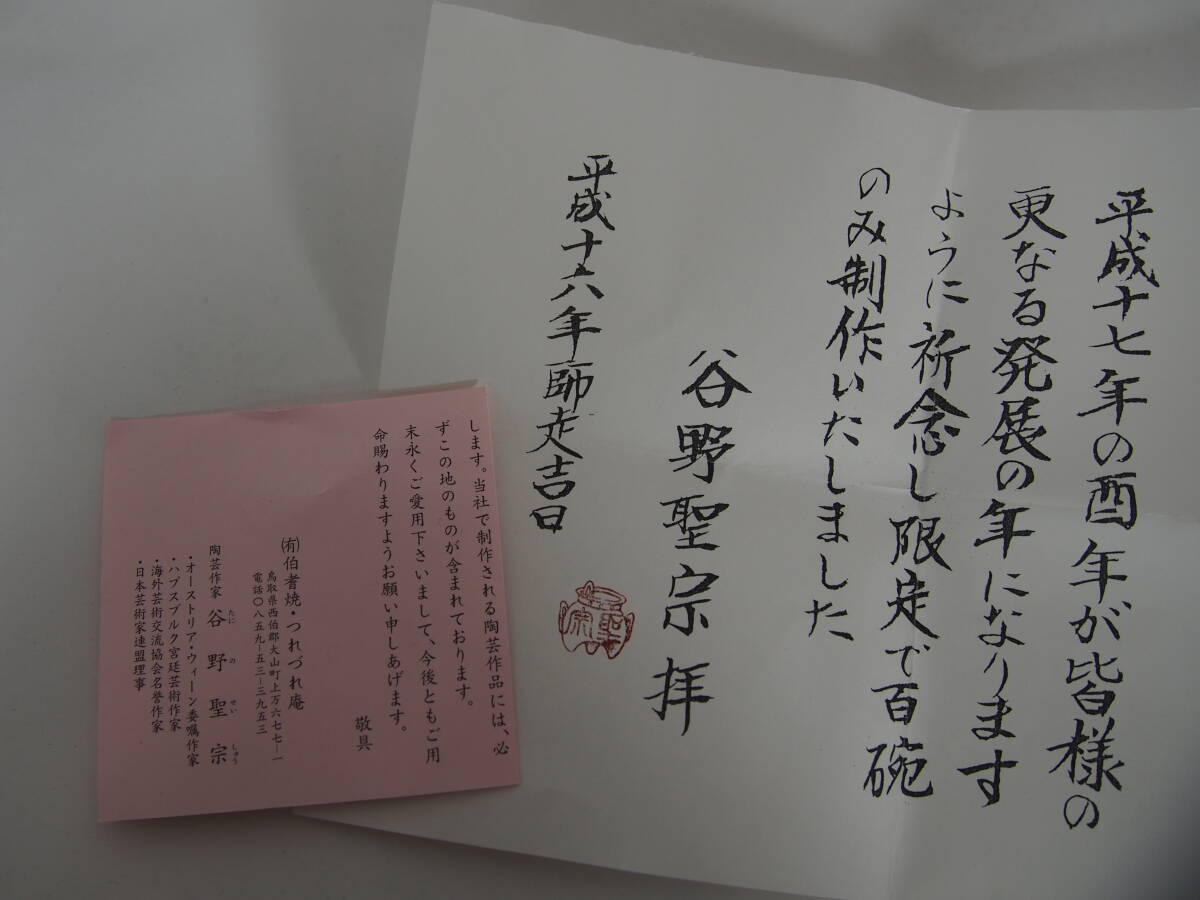 平成十七年の酉年が皆様の
更なる発展の年になります
ように祈念し限定で百碗
のみ制作いたしました
谷野聖宗拝
聖宗
平成十六年師走吉日
します。当社で制作される陶芸作品には、必
ずこの地のものが含まれております。
末永くご愛用下さいまして、今後ともご用
命賜わりますようお願い申しあげます。
敬具
㈲伯耆焼・つれづれ庵
鳥取県西伯郡大山町上万六七七―一
電話〇八五九―五三―三九五三
陶芸作家 谷野聖宗
たに の せい しゅう
・オーストリア・ウィーン委嘱作家
・ハプスブルク宮廷芸術作家
・海外芸術交流協会名誉作家
・日本芸術家連盟理事